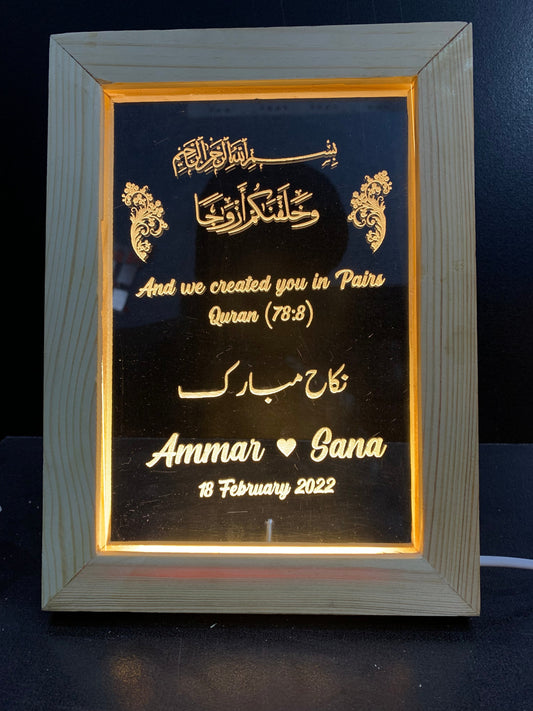 بِسْمِ اللَّهِ الرَّحْمَنِ الرَّحِيمِ
وَخَلَقْنَكُمْ أَزْوَٰجًا
And we created you in Pairs
Quran (78:8)
نکاح مبارک
Ammar ♥ Sana
18 February 2022